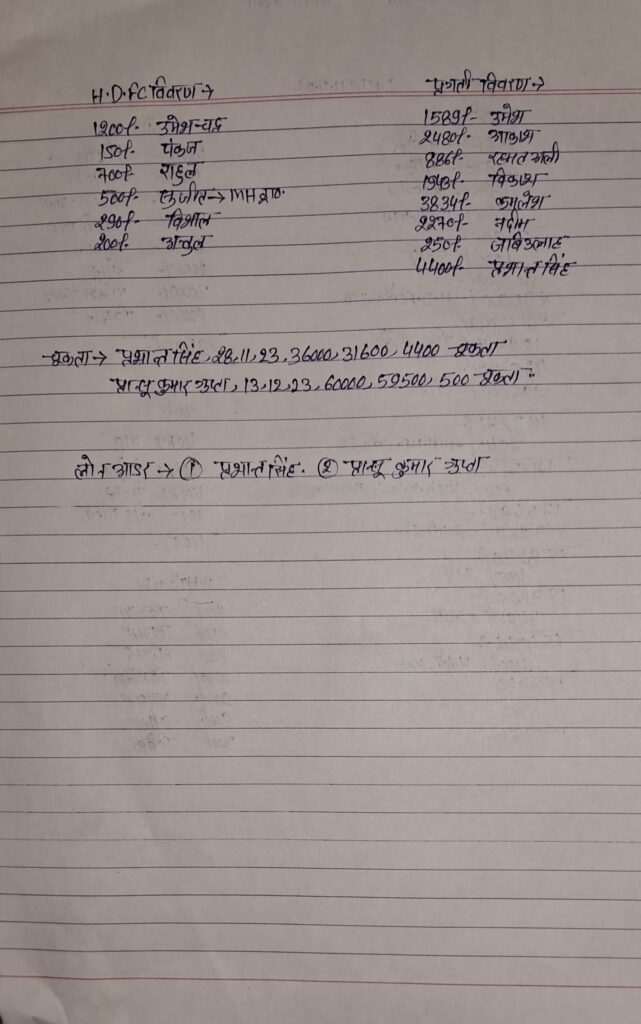 H.D.FC विवरण →
1200/- उमेश चन्द्र
150/- पंकज
700/- राहुल
500/- → MH
290/- विशाल
200/- अतुल
प्रगती विवरण →
1589/- उमेश
2480/- आकाश
886/- रहमत अली
1943/- विकाश
3834/- कमलेश
2270/- नदीम
250/-
4400/- प्रशान्त सिंह
चुकता → प्रशान्त सिंह, 28,11,23, 36000, 31600, 4400 चुकता
कुमार गुप्ता, 13,12,23, 60000, 59500, 500 चुकता.
लोन आडर → ① प्रशान्त सिंह. ② कुमार गुप्ता